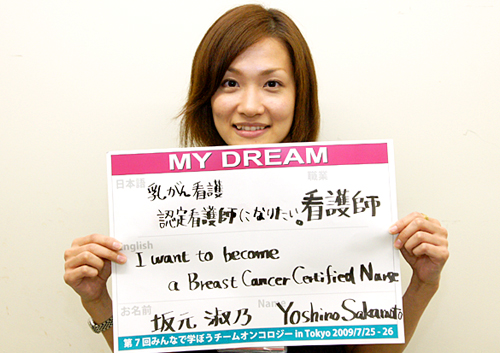 MY DREAM
日本語
職業
乳がん看護
認定看護師になりたい。
看護師
English
I want to become
a Breast Cancer Certified Nurse
お名前
Name
坂元 淑乃 Yoshino Sakamoto
第7回みんなで学ぼうチームオンコロジー in Tokyo 2009/7/25 - 26